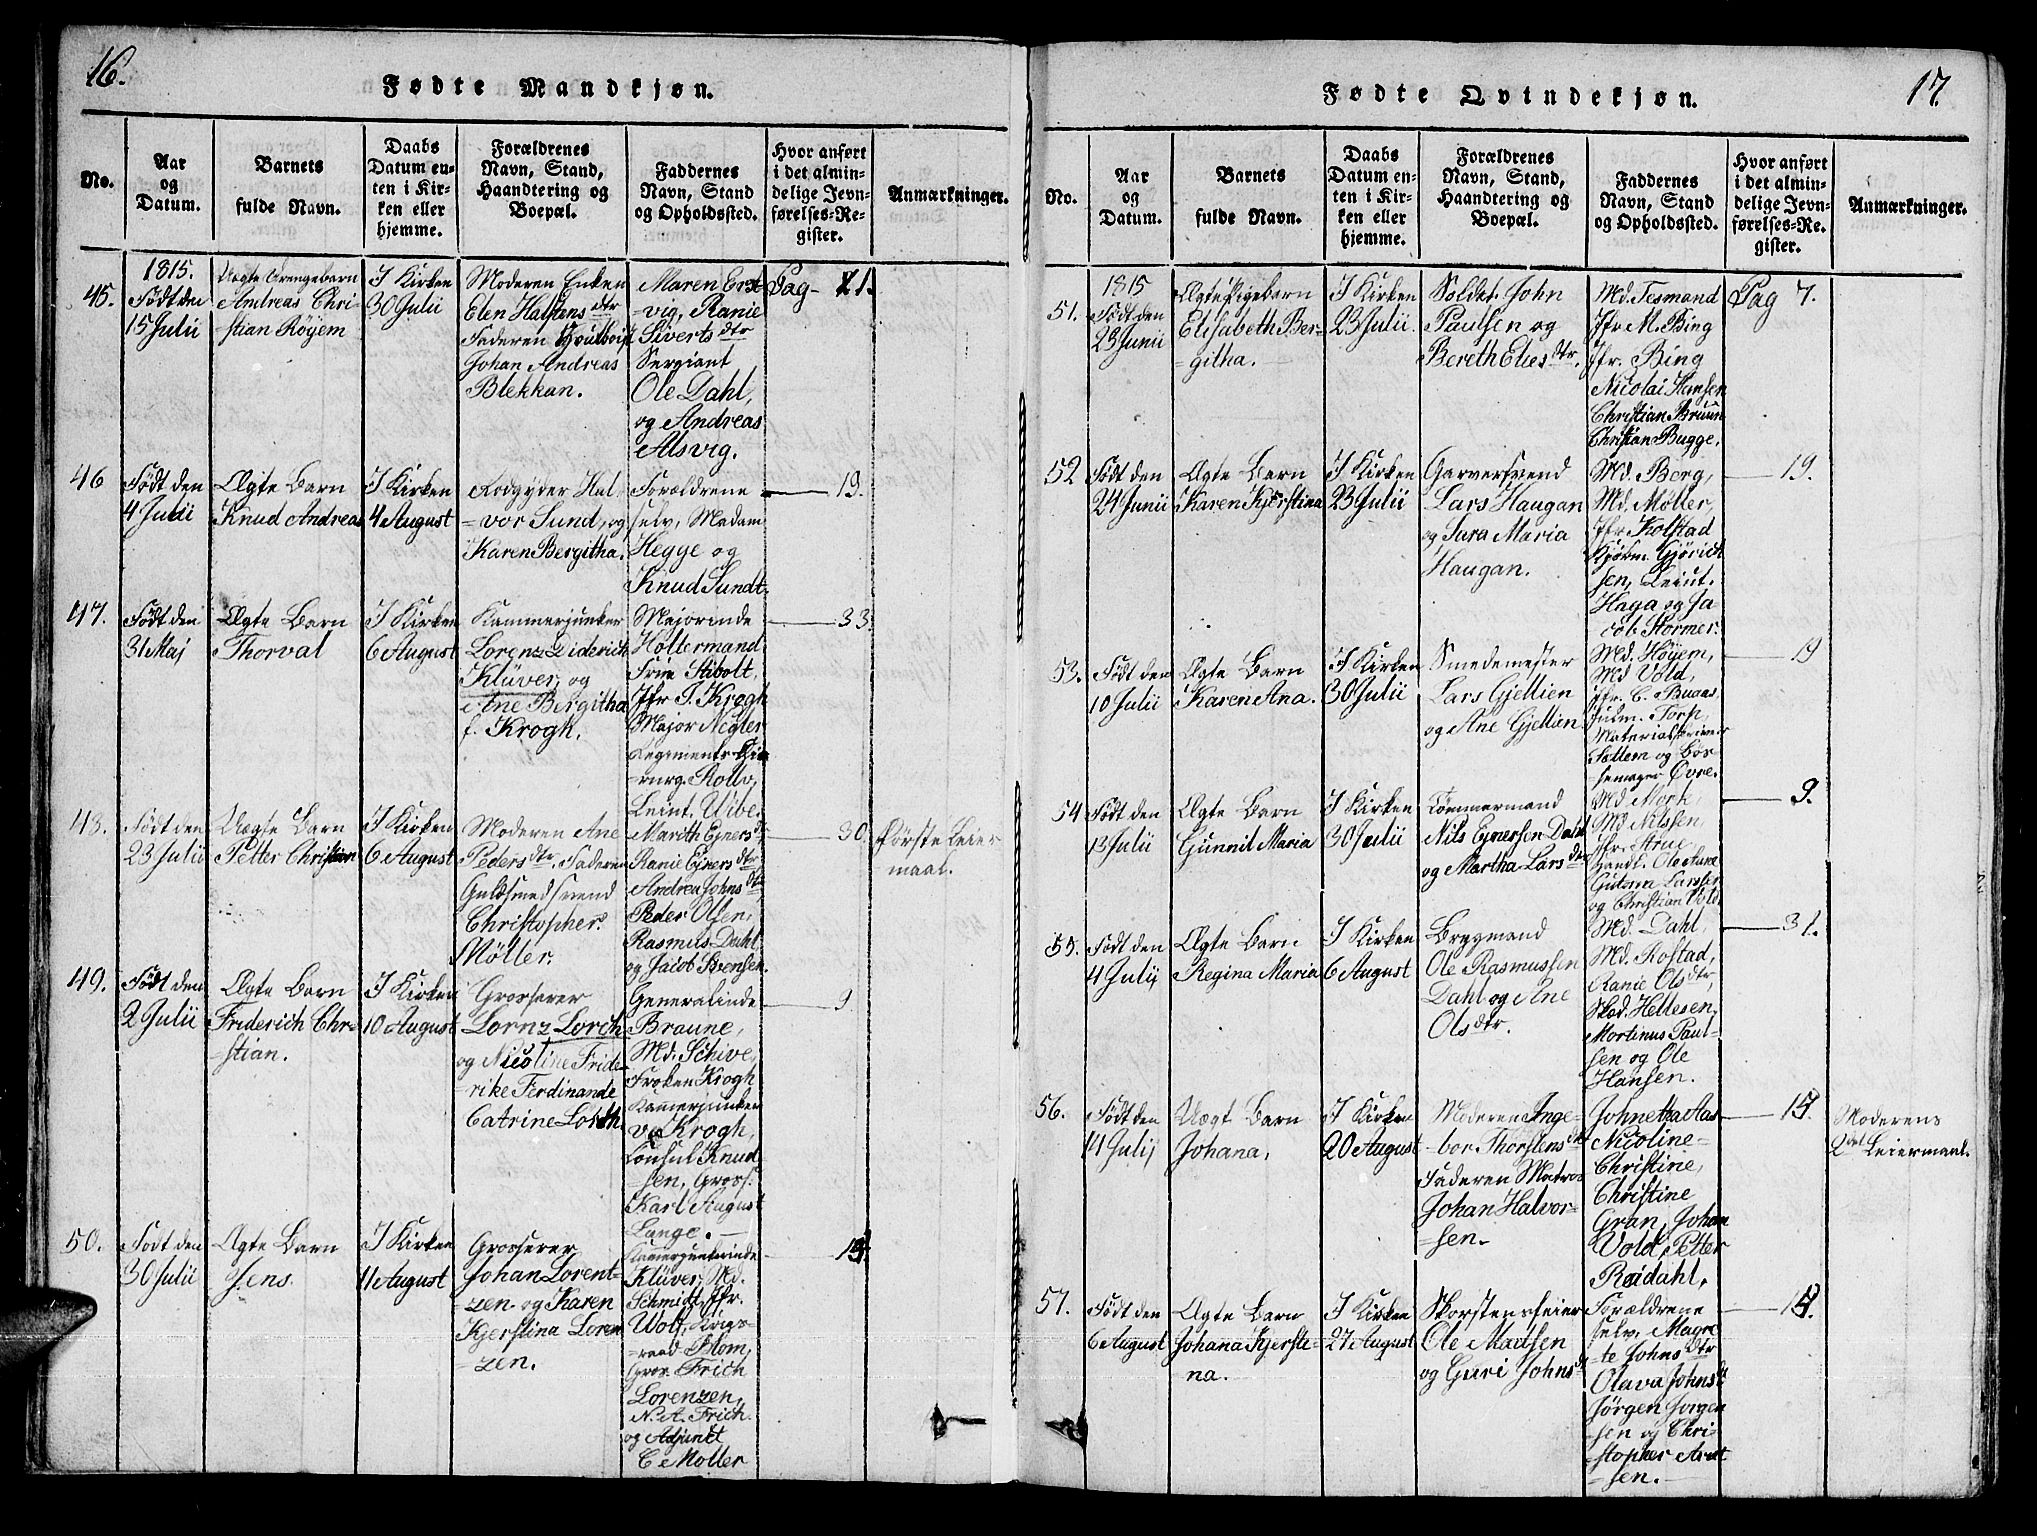 16.
Fødte Mandkjøn.
No.
Aar
og
Datum.
Barnets
fulde Navn.
Daabs
Datum en-
ten i Kir-
ken eller
hjemme.
Forældrenes
Navn, Stand,
Haandtering og
Boepæl.
Faddernes
Navn, Stand
og Opholdssted.
Hvor anført
i det almin-
delige Jevn-
førelses-Re-
gister.
Anmærkninger.
45.
1815.
Født den
15 Julii
Uægte Drengebarn
Andreas Chri-
stian Röyem
I Kirken
30 Julii
Moderen Enken
Elen Halstens dtr
Faderen
Johan Andreas
Blekkan.
Maren Erst-
vig, Ranie
Siverts dtr
Sergiant
Ole Dahl,
og Andreas
Alsvig.
Pag 21.
46
Født den
4 Julii
Ægte Barn
Knud Andreas
I Kirken
4 August
Rodgyder Hal-
vor Sund, og
Karen Bergitha.
Forældrene
selv, Madam
Hegge og
Knud Sundt.
19.
47.
Født den
31 Maj
Ægte Barn
Thorval
I Kirken
6 August
Kammerjunker
Lorenz Diderich
Klüver, og
Ane Bergitha
f. Krogh.
Majorinde
Holtermand
Frue Stibolt,
Jfr T. Krogh
Major Negler
Regiments Chi-
rurg. Rollo,
Leint. Wibe.
33.
48.
Født den
23 Julii
Uægte Barn
Petter Christian
I Kirken
6 August
Moderen Ane
Peders dtr. Faderen
Guldsmedsvend
Christopher
Møller.
Marith Ejners dtr
Ranie Ejners dtr
Andrea Johns dtr
Peder Olsen,
Rasmus Dahl
og Jacob Sørensen.
30.
Første Leier
maal.
49.
Født den
2 Julii
Ægte Barn
Friderich Chri-
stian.
I Kirken
10 August
Grosserer
Lornz Lorch
og Nicoline Fride
rike Ferdinande
Catrine Lorch.
Generalinde
Braune,
Md. Schive,
Frøken Krogh
Kammerjunker
v. Krogh,
Consul Knud
sen, Gross.
Karl August
Lange.
9
50.
Født den
30 Julii
Ægte Barn
Jens.
I Kirken
11 August
Grosserer
Johan Lorent-
zen og Karen
Kjerstina Loren
zen.
Kamerjunkerinde
Klüver, Md.
Schmidt, Jfr.
Wolf, Krigs-
raad Blom,
Gros. Frich
Lorenzen,
N. A. Frich
og Adjunct
C. Møller
17.
Fødte Qvindekjøn.
No.
Aar
og
Datum.
Barnets
fulde Navn.
Daabs
Datum en-
ten i Kir-
ken eller
hjemme.
Forældrenes
Navn, Stand,
Haandtering og
Boepæl.
Faddernes
Navn, Stand
og Opholdssted.
Hvor anført
i det almin-
delige Jevn-
førelses-Re-
gister.
Anmærkninger.
51.
1815
Født den
23 Junii
Ægte Pigebarn
Elisabeth Ber-
githa.
I Kirken
23 Julii
Soldat John
Paulsen og
Bereth Elies dtr.
Md. Tesmand
Jfr M. Bing
Jfr. Bing
Nicolai Hansen
Christian Bruun
Christian Bugge.
Pag 7.
52
Født den
24 Junii
Ægte Barn
Karen Kjerstina
I Kirken
23 Julii
Garversvend
Lars Haugan
og Sara Maria
Haugan.
Md. Berg,
Md. Møller,
Jfr Kolstad
Kjøbm. Gjørich
sen, Leiut.
Haga og Ja
cob Stormer.
19.
53.
Født den
10 Julii
Ægte Barn
Karen Ana.
I Kirken
30 Julii
Smedemester
Lars Gjellien
og Ane Gjellien
Md. Høyem,
Md Vold,
Jfr. C. Buaas
Torp,
Materialskriver
Sættem og Bøs-
semager Øvre.
19
54
Født den
13 Julii
Ægte Barn
Gunnil Maria
I Kirken
30 Julii
Tømmermand
Nils Ejnersen Dahl
og Martha Lars dtr
Md Mork,
Md Nilssen,
Jfr. Strue
Handl. Ole Aune
Gutorm Larssen
og Christian Vold
9.
55.
Født den
4 Julij
Ægte Barn
Regina Maria
I Kirken
6 August
Brygmand
Ole Rasmussen
Dahl og Ane
Ols dtr.
Md. Dahl,
Md. Rostad,
Ranie Ols dtr,
Skod. Hellesen,
Mortinus Paul-
sen og Ole
Hansen.
31.
56.
Født den
14 Julij
Uægt Barn
Johana,
I Kirken
20 August
Moderen Inge-
bor Thorstens dtr
Faderen Matros
Johan Halvor-
sen.
Johnetta Aas
Nicoline
Christine,
Christine
Gran, Johan
Vold, Petter
Reidahl,
Moderens
2det Leiermaal.
57.
Født den
6 August
Ægte Barn
Johana Kjerste-
na.
I Kirken
27 August
Skorstensfeier
Ole Madsen
og Guri Johns dtr
Forældrene
selv, Magre
te Johns dtr
Olava Johns dtr
Jørgen Jørgen
sen og Chri-
stopher Arnt
sen.